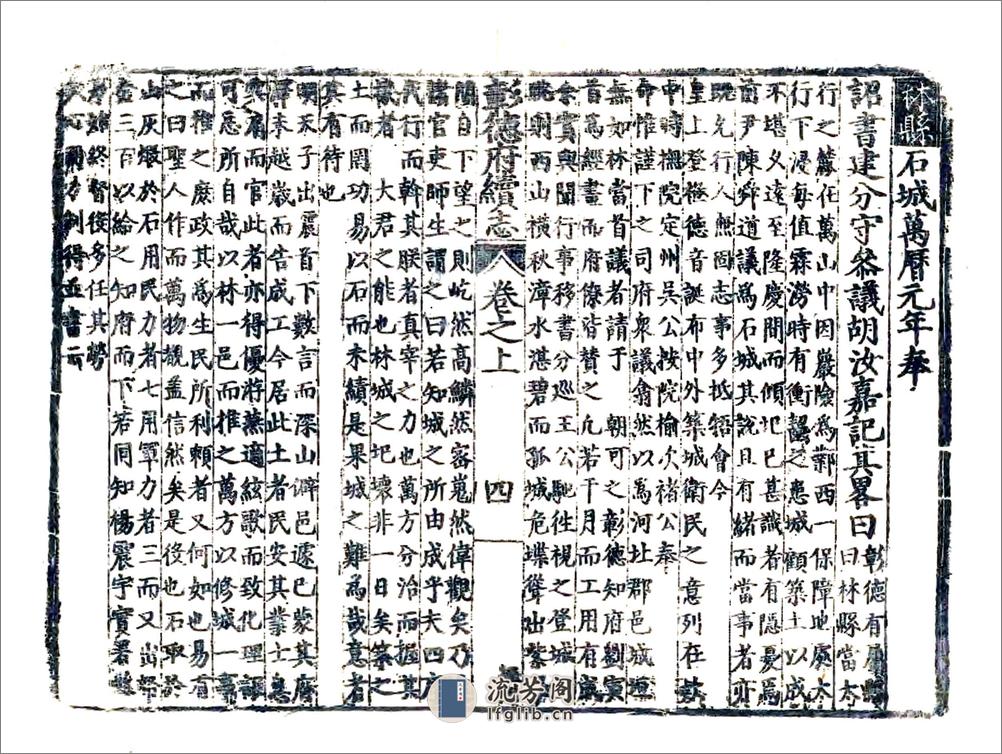 林縣石城萬曆元年奉
詔書建分守叅議胡汝嘉記其畧曰彰德有屬
曰林縣當太
行之麓在萬山中因巖險為鄴西一保障地處太
行下浸每值霖澇時有衝齧之患城顧築土以成
不堪久遠至隆慶間而傾圮已甚識者有隱憂焉
前尹陳舜道議為石城其說且有緒而當事者亦
旣允行人無固志事多抵牾會今
皇上登極德音誕布中外築城衛民之意列在
中時撫院定州吳公按院榆次褚公奉
命惟謹下之司府衆議翕然以為河北郡邑城
無如林當首議者請于朝可之彰德知府劉寅
首為經畫而府僚皆贊之允若干月而工用有成
余實與聞行事移書分巡王公馳往視之登城
眺朝西山橫秋漳水湛碧而孤城危堞聳出紫
間自下望之則屹然高鱗然密嵬然偉觀矣乃
諸官吏師生謂之曰若知城之所由成乎夫四
代行而斡其朕者真宰之力也萬方分治而握其
者大君之能也林城之圮壞非一日矣築之
土而罔功易以石而未續是果城之難為哉意者
其有待也
明天子出震首下數言而深山僻邑遂已蒙其
未越歲而告成工今居此土者民安其業士息
肩而官此者亦得優游燕適絃歌而致化理
可忘所自哉以林一邑而推之萬方以修城一事
而推之庶政其為生民所利賴者又何如也易有
之曰聖人作而萬物覩盖信然矣是役也石取於
山灰煅於石用民力者七用軍力者三而又出帑
金三百以給之知府而下若同知楊震宇實署
始終督役多任其勞
得並書云
彰德府續志
卷之上
四
流芳阁
lfglib.cn